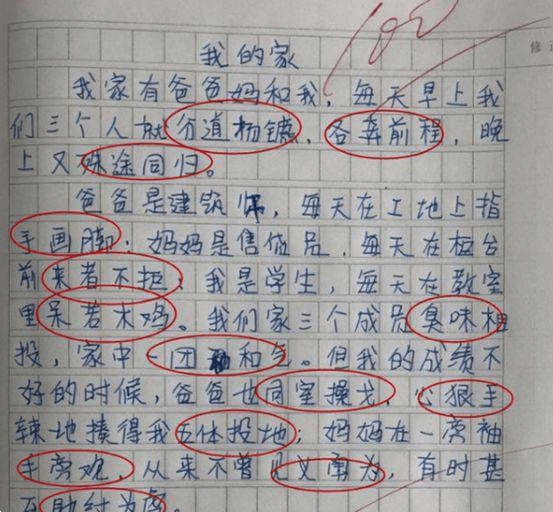 100
修
我的家
我家有爸爸妈和我，每天早上我
们三个人就分道杨镳，各奔前程，晚
上又殊途同归。
爸爸是建筑师，每天在工地上指
手画脚；妈妈是售货员，每天在柜台
前来者不拒，我是学生，每天在教室
里呆若木鸡。我们家三个成员臭味相
投，家中一团和气。但我的成绩不
好的时候，爸爸也同室操戈，心狠手
辣地揍得我五体投地；妈妈在一旁袖
手旁观，从来不曾见义勇为，有时甚
至助纣为虐。